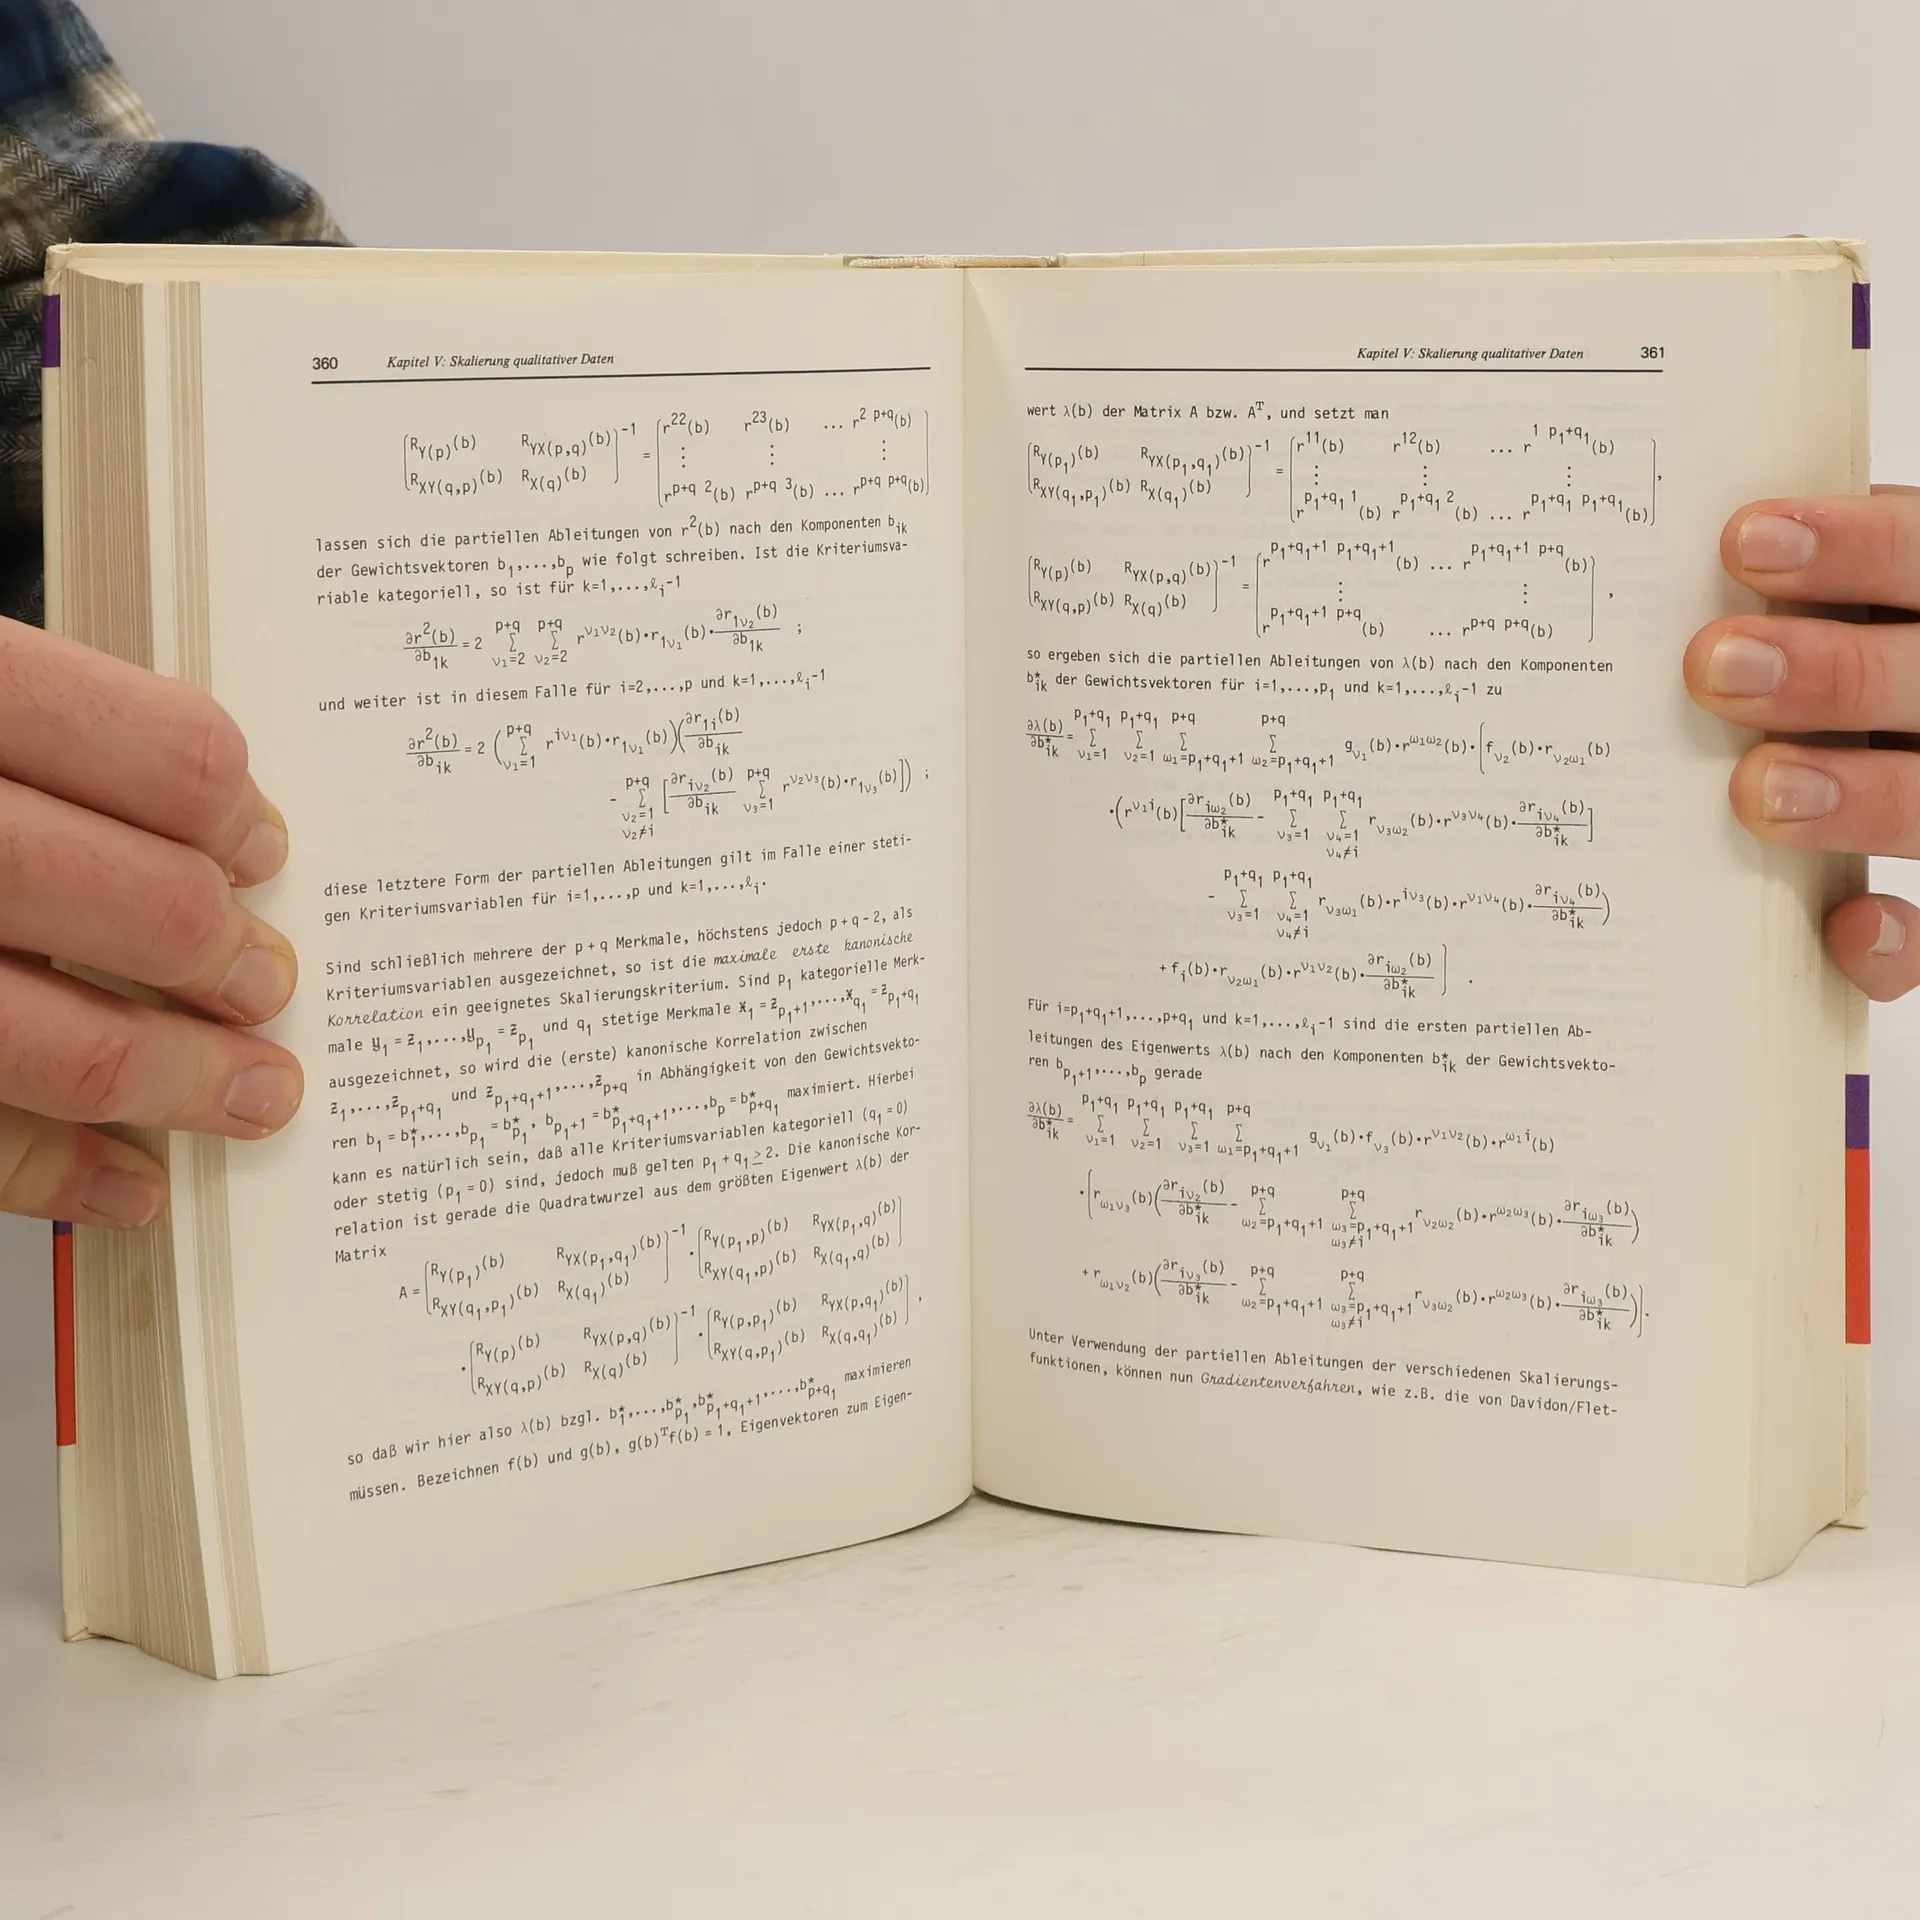 360 Kapitel V: Skalierung qualitativer Daten
(R_Y(p)(b) R_YX(p,q)(b))^-1 = (r^22(b) r^23(b) ... r^2 p+q(b)
(R_XY(q,p)(b) R_X(q)(b)) ⋮ ⋮ ⋮
r^p+q 2(b) r^p+q 3(b) ... r^p+q p+q(b))
lassen sich die partiellen Ableitungen von r²(b) nach den Komponenten b_ik
der Gewichtsvektoren b_1,...,b_p wie folgt schreiben. Ist die Kriteriumsva-
riable kategoriell, so ist für k=1,...,ℓ_i-1
∂r²(b)/∂b_1k = 2 Σ_{ν1=2}^{p+q} Σ_{ν2=2}^{p+q} r^{ν1ν2}(b)·r_{1ν1}(b)·∂r_{1ν2}(b)/∂b_1k ;
und weiter ist in diesem Falle für i=2,...,p und k=1,...,ℓ_i-1
∂r²(b)/∂b_ik = 2 (Σ_{ν1=1}^{p+q} r^{iν1}(b)·r_{1ν1}(b))(∂r_{1i}(b)/∂b_ik
- Σ_{ν2=1, ν2≠i}^{p+q} [∂r_{iν2}(b)/∂b_ik Σ_{ν3=1}^{p+q} r^{ν2ν3}(b)·r_{1ν3}(b)]) ;
diese letztere Form der partiellen Ableitungen gilt im Falle einer steti-
gen Kriteriumsvariablen für i=1,...,p und k=1,...,ℓ_i.
Sind schließlich mehrere der p+q Merkmale, höchstens jedoch p+q-2, als
Kriteriumsvariablen ausgezeichnet, so ist die maximale erste kanonische
Korrelation ein geeignetes Skalierungskriterium. Sind p_1 kategorielle Merk-
male y_1 = z_1,...,y_p1 = z_p1 und q_1 stetige Merkmale x_1 = z_p1+1,...,x_q1 = z_p1+q1
ausgezeichnet, so wird die (erste) kanonische Korrelation zwischen
z_1,...,z_p1+q1 und z_p1+q1+1,...,z_p+q in Abhängigkeit von den Gewichtsvekto-
ren b_1 = b*_1,...,b_p1 = b*_p1, b_p1+1 = b*_p1+q1+1,...,b_p = b*_p+q1 maximiert. Hierbei
kann es natürlich sein, daß alle Kriteriumsvariablen kategoriell (q_1 = 0)
oder stetig (p_1 = 0) sind, jedoch muß gelten p_1 + q_1 ≥ 2. Die kanonische Kor-
relation ist gerade die Quadratwurzel aus dem größten Eigenwert λ(b) der
Matrix
A = (R_Y(p1)(b) R_YX(p1,q1)(b))^-1 · (R_Y(p1,p)(b) R_YX(p1,q)(b))
(R_XY(q1,p1)(b) R_X(q1)(b)) (R_XY(q1,p)(b) R_X(q1,q)(b))
· (R_Y(p)(b) R_YX(p,q)(b))^-1 · (R_Y(p,p1)(b) R_YX(p,q1)(b)) ,
(R_XY(q,p)(b) R_X(q)(b)) (R_XY(q,p1)(b) R_X(q,q1)(b))
so daß wir hier also λ(b) bzgl. b*_1,...,b*_p1, b*_p1+q1+1,...,b*_p+q1 maximieren
müssen. Bezeichnen f(b) und g(b), g(b)^T f(b) = 1, Eigenvektoren zum Eigen-
Kapitel V: Skalierung qualitativer Daten 361
wert λ(b) der Matrix A bzw. A^T, und setzt man
(R_Y(p1)(b) R_YX(p1,q1)(b))^-1 = (r^11(b) r^12(b) ... r^1 p1+q1(b)
(R_XY(q1,p1)(b) R_X(q1)(b)) ⋮ ⋮ ⋮
r^p1+q1 1(b) r^p1+q1 2(b) ... r^p1+q1 p1+q1(b)) ,
(R_Y(p)(b) R_YX(p,q)(b))^-1 = (r^p1+q1+1 p1+q1+1(b) ... r^p1+q1+1 p+q(b)
(R_XY(q,p)(b) R_X(q)(b)) ⋮ ⋮
r^p1+q1+1 p+q(b) ... r^p+q p+q(b)) ,
so ergeben sich die partiellen Ableitungen von λ(b) nach den Komponenten
b*_ik der Gewichtsvektoren für i=1,...,p_1 und k=1,...,ℓ_i-1 zu
∂λ(b)/∂b*_ik = Σ_{ν1=1}^{p1+q1} Σ_{ν2=1}^{p1+q1} Σ_{ω1=p1+q1+1}^{p+q} Σ_{ω2=p1+q1+1}^{p+q} g_ν1(b)·r^{ω1ω2}(b)·(f_ν2(b)·r_{ν2ω1}(b)
·(r^{ν1i}(b)[∂r_{iω2}(b)/∂b*_ik - Σ_{ν3=1}^{p1+q1} Σ_{ν4=1, ν4≠i}^{p1+q1} r_{ν3ω2}(b)·r^{ν3ν4}(b)·∂r_{iν4}(b)/∂b*_ik]
- Σ_{ν3=1}^{p1+q1} Σ_{ν4=1, ν4≠i}^{p1+q1} r_{ν3ω1}(b)·r^{iν3}(b)·r^{ν1ν4}(b)·∂r_{iν4}(b)/∂b*_ik)
+ f_i(b)·r_{ν2ω1}(b)·r^{ν1ν2}(b)·∂r_{iω2}(b)/∂b*_ik) .
Für i=p_1+q_1+1,...,p+q_1 und k=1,...,ℓ_i-1 sind die ersten partiellen Ab-
leitungen des Eigenwerts λ(b) nach den Komponenten b*_ik der Gewichtsvekto-
ren b_p1+1,...,b_p gerade
∂λ(b)/∂b*_ik = Σ_{ν1=1}^{p1+q1} Σ_{ν2=1}^{p1+q1} Σ_{ν3=1}^{p1+q1} Σ_{ω1=p1+q1+1}^{p+q} g_ν1(b)·f_ν3(b)·r^{ν1ν2}(b)·r^{ω1i}(b)
·(r_{ω1ν3}(b)(∂r_{iν2}(b)/∂b*_ik - Σ_{ω2=p1+q1+1}^{p+q} Σ_{ω3=p1+q1+1, ω3≠i}^{p+q} r_{ν2ω2}(b)·r^{ω2ω3}(b)·∂r_{iω3}(b)/∂b*_ik)
+ r_{ω1ν2}(b)(∂r_{iν3}(b)/∂b*_ik - Σ_{ω2=p1+q1+1}^{p+q} Σ_{ω3=p1+q1+1, ω3≠i}^{p+q} r_{ν3ω2}(b)·r^{ω2ω3}(b)·∂r_{iω3}(b)/∂b*_ik)).
Unter Verwendung der partiellen Ableitungen der verschiedenen Skalierungs-
funktionen, können nun Gradientenverfahren, wie z.B. die von Davidon/Flet-